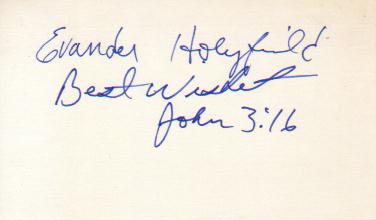 Evander Holyfield
Best Wishes
John 3:16